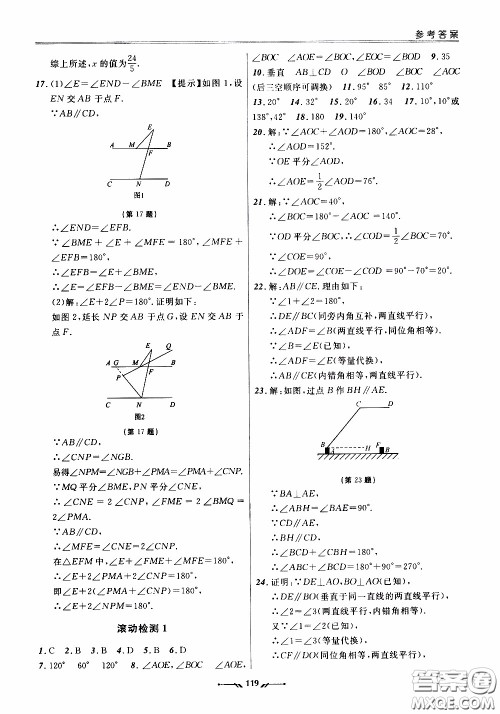 参考答案
综上所述，x的值为24/5.
17. (1)∠E=∠END-∠BME 【提示】如图1，设
EN交AB于点F.
∵AB∥CD,
E
A M B
F
C N D
图1
(第17题)
∴∠END=∠EFB.
∵∠BME+∠E+∠MFE=180°,∠MFE+
∠EFB=180°,
∴∠EFB=∠E+∠BME,
∴∠E=∠END-∠BME.
(2)解：∠E+2∠P=180°.证明如下：
如图2,延长NP交AB于点G,设EN交AB于
点F.
E Q
A G M B
P F
C N D
图2
(第17题)
∵AB∥CD,
∴∠CNP=∠NGB.
易得∠NPM=∠NGB+∠PMA=∠PMA+∠CNP.
∵MQ平分∠BME,PN平分∠CNE,
∴∠CNE=2∠CNP,∠FME=2∠BMQ=
2∠PMA.
∵AB∥CD,
∴∠MFE=∠CNE=2∠CNP.
在△EFM中,∠E+∠FME+∠MFE=180°,
∴∠E+2∠PMA+2∠CNP=180°,
即∠E+2(∠PMA+∠CNP)=180°,
∴∠E+2∠NPM=180°.
滚动检测1
1. C 2. D 3. B 4. B 5. B 6. D
7. 120° 60° 120° 8. ∠AOE,∠BOC ∠AOE,
∠BOC ∠AOE=∠BOC=∠BOD 9. 35
10. 垂直 AB⊥CD O ∠BOD ∠BOC ∠AOC
(后三空顺序可调换) 11. 95° 85° 12. 110°
13. 20° 14. 32° 15. 20° 16. 20° 17. 10°,10°或
138°,42° 18. 180° 19. 140°
20. 解：∵∠AOC+∠AOD=180°,∠AOC=28°,
∴∠AOD=152°.
∵OE平分∠AOD,
∴∠AOE=1/2∠AOD=76°.
21. 解：∵∠AOC=40°,
∴∠BOC=180°-∠AOC=140°.
∵OD平分∠BOC,∴∠COD=1/2∠BOC=70°.
∵∠COE=90°,
∴∠DOE=∠COE-∠COD=90°-70°=20°.
22. 解：AB∥CE.理由如下：
∵∠1+∠2=180°,
∴DE∥BC(同旁内角互补,两直线平行),
∴∠ADF=∠B(两直线平行,同位角相等).
∵∠B=∠E(已知),
∴∠ADF=∠E(等量代换),
∴AB∥CE(内错角相等,两直线平行).
23. 解：如图,过点B作BH∥AE.
C D
B H F
A E
(第23题)
∵BA⊥AE,
∴∠ABH=∠BAE=90°.
∵CD∥AE,
∴BH∥CD,
∴∠BCD+∠CBH=180°,
∴∠ABC+∠BCD=180°+90°=270°.
24. 证明：∵DE⊥AO,BO⊥AO(已知),
∴DE∥BO(垂直于同一直线的两直线平行),
∴∠2=∠3(两直线平行,内错角相等).
又∵∠1=∠2(已知),
∴∠1=∠3(等量代换),
∴CF∥DO(同位角相等,两直线平行),
119